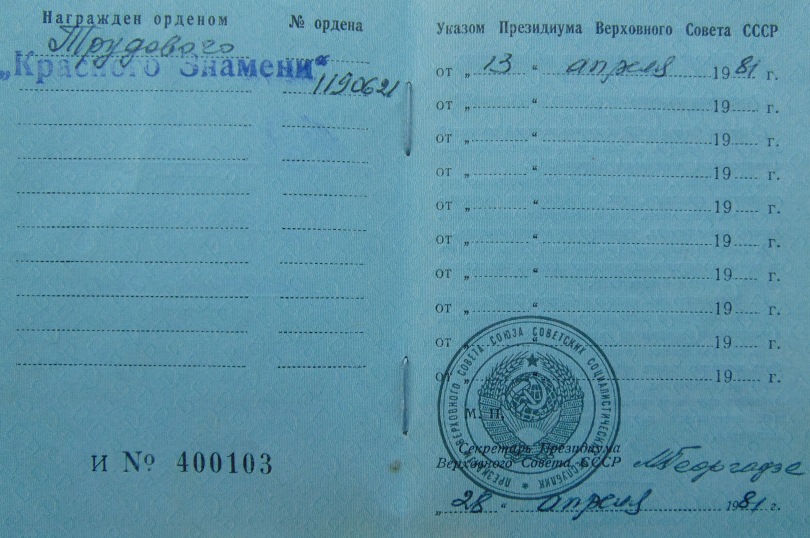 Награжден орденом
№ ордена
Трудового
„Красного Знамени“
1190621
И № 400103
Указом Президиума Верховного Совета СССР
от „ 13 “ апреля 1981 г.
от „ “ 19 г.
от „ “ 19 г.
от „ “ 19 г.
от „ “ 19 г.
от „ “ 19 г.
от „ “ 19 г.
от „ “ 19 г.
от „ “ 19 г.
от „ “ 19 г.
ПРЕЗИДИУМ ВЕРХОВНОГО СОВЕТА СОЮЗА СОВЕТСКИХ СОЦИАЛИСТИЧЕСКИХ РЕСПУБЛИК
М. П.
Секретарь Президиума
Верховного Совета СССР МГеоргадзе
„ 28 “ апреля 1981 г.